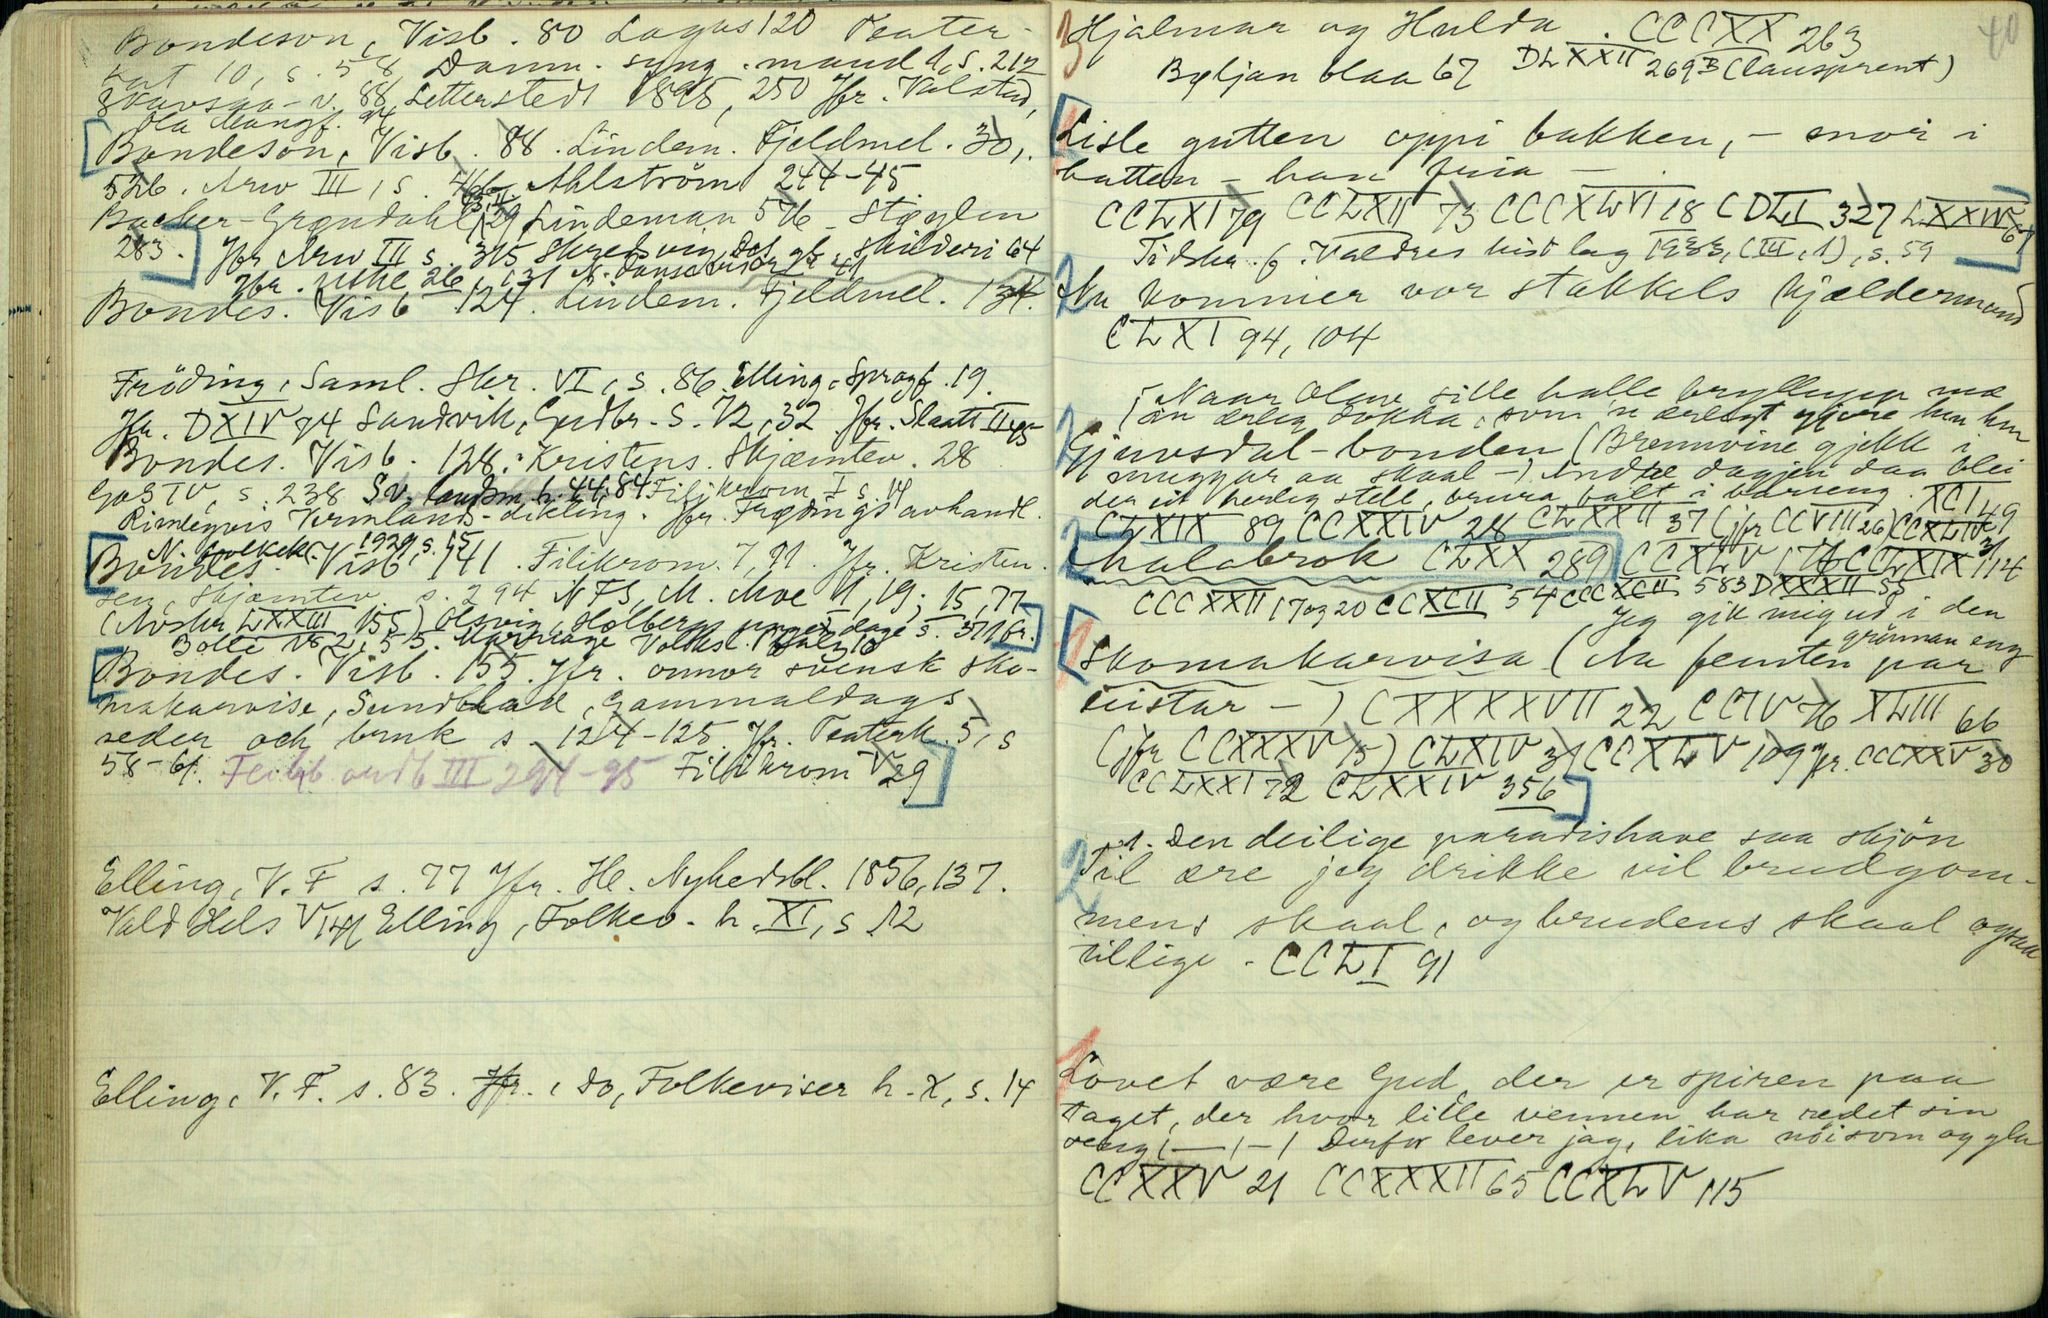 Bondeson, Visb. 80 Lagus 120 Teater-
kat 10, s. 58 Danm. syng. mand 1, s. 212
v. 88, Letterstedt 1895, 250 Jfr. Kolstad,
Bondeson, Visb. 88. Lindem. Fjeldmel. 30,
526. Arw III, s. Ahlström 244-45
Backer-Grøndahl, 29 Lindeman 576 Støylen
283. Jfr Arw III s. 315 Skredsvig, Dag. gl. skilderi 64
Bondes. Visb 124. Lindem. Fjeldmel. 134.
Fröding, Saml. Skr. VI, s. 86. Elling, Spragf. 19.
Jfr. DXIV 74 Sandvik, Gudbr. S. V2, 32 Jfr. Slaatt II 45
Bondes. Visb. 128. Kristens. Skjæmtev. 28
GaSIV, s. 238 Sv. landsm. h. 44. 84 Filikrom I s. 14
Vermlands-dikting. Jfr. Frødings avhandl.
N. folkek. 1929, s. 15
Bondes. Visb. 141. Filikrom. 7, 11. Jfr. Kristen-
sen, Skjæmtev. s. 294 NFS, M. Moe 11, 19; 15, 77
(Avskr LXXIII 155) Olsvig, Holbergs unge dage s. 311 fr.
Bondes. Visb. 155. Jfr. annor svensk sko-
makarvise, Sundblad, Gammaldags
seder och bruk s. 124-125. Jfr. Teaterk. 5, s
58-61. Feilb ordb III 294-95 Filikrom V 29
Elling, V. F s. 77 Jfr. Ill. Nyhedsbl. 1856, 137.
Vald Hels V 141 Elling, Folkev. h. XI, s. 12
Elling, V. F. s. 83. Jfr., Do, Folkeviser h. X, s. 14
40
3 Hjalmar og Hulda. CCCXX 263
Byljan blaa 67 DLXXII 269B (Lausprent)
1 Lisle gutten oppi bakken, - snor i
hatten - han fria -
CCLXI 79 CCLXII 73 CCCXLVI 18 CDLI 327 LXXIV 61
Tidskr. f. Valdres hist lag 1933, (III, 1), s. 59
2 Nu kommer vor stakkels kjældermand
CLXI 94, 104
Naar Olav sille halle bryllupp mæ
2 Gjuvsdal-bonden (Brennvine gjekk i
muggur aa skaal -) Andre dagjen daa blei
der eit herleg stell, brura balt i barseng. XCI 49
CLXIX 89 CCXXIV 28 CLXXII 37 (jfr CCVIII 26) CCXLIV 31
2 Malabrok CLXX 289 CCXLV 176 CCLXIX 114
CCCXXII 17 og 20 CCXCII 54 CCCXCII 583 DXXXII 55
Jeg gik mig ud i den
grönnan eng
1 Skomakarvisa (Au femten par
listar -) CXXXXVII 22 CCIV 76 XLIII 66
(jfr CCXXXV 15) CLXIV 31 CCXLV 109 Jfr. CCCXXV 30
CCLXXI 72 CLXXIV 356
1. Den deilige paradishave saa skjön
2 Til ære jeg drikke vil brudgom-
mens skaal, og brudens skaal ogsaa
tillige - CCLI 91
1 Lovet være Gud, der er spiren paa
taget, der hvor lille vennen har redet sin
seng, -, - / Derfor lever jag, lika nöisom og gla
CCXXV 21 CCXXXII 65 CCXLV 115